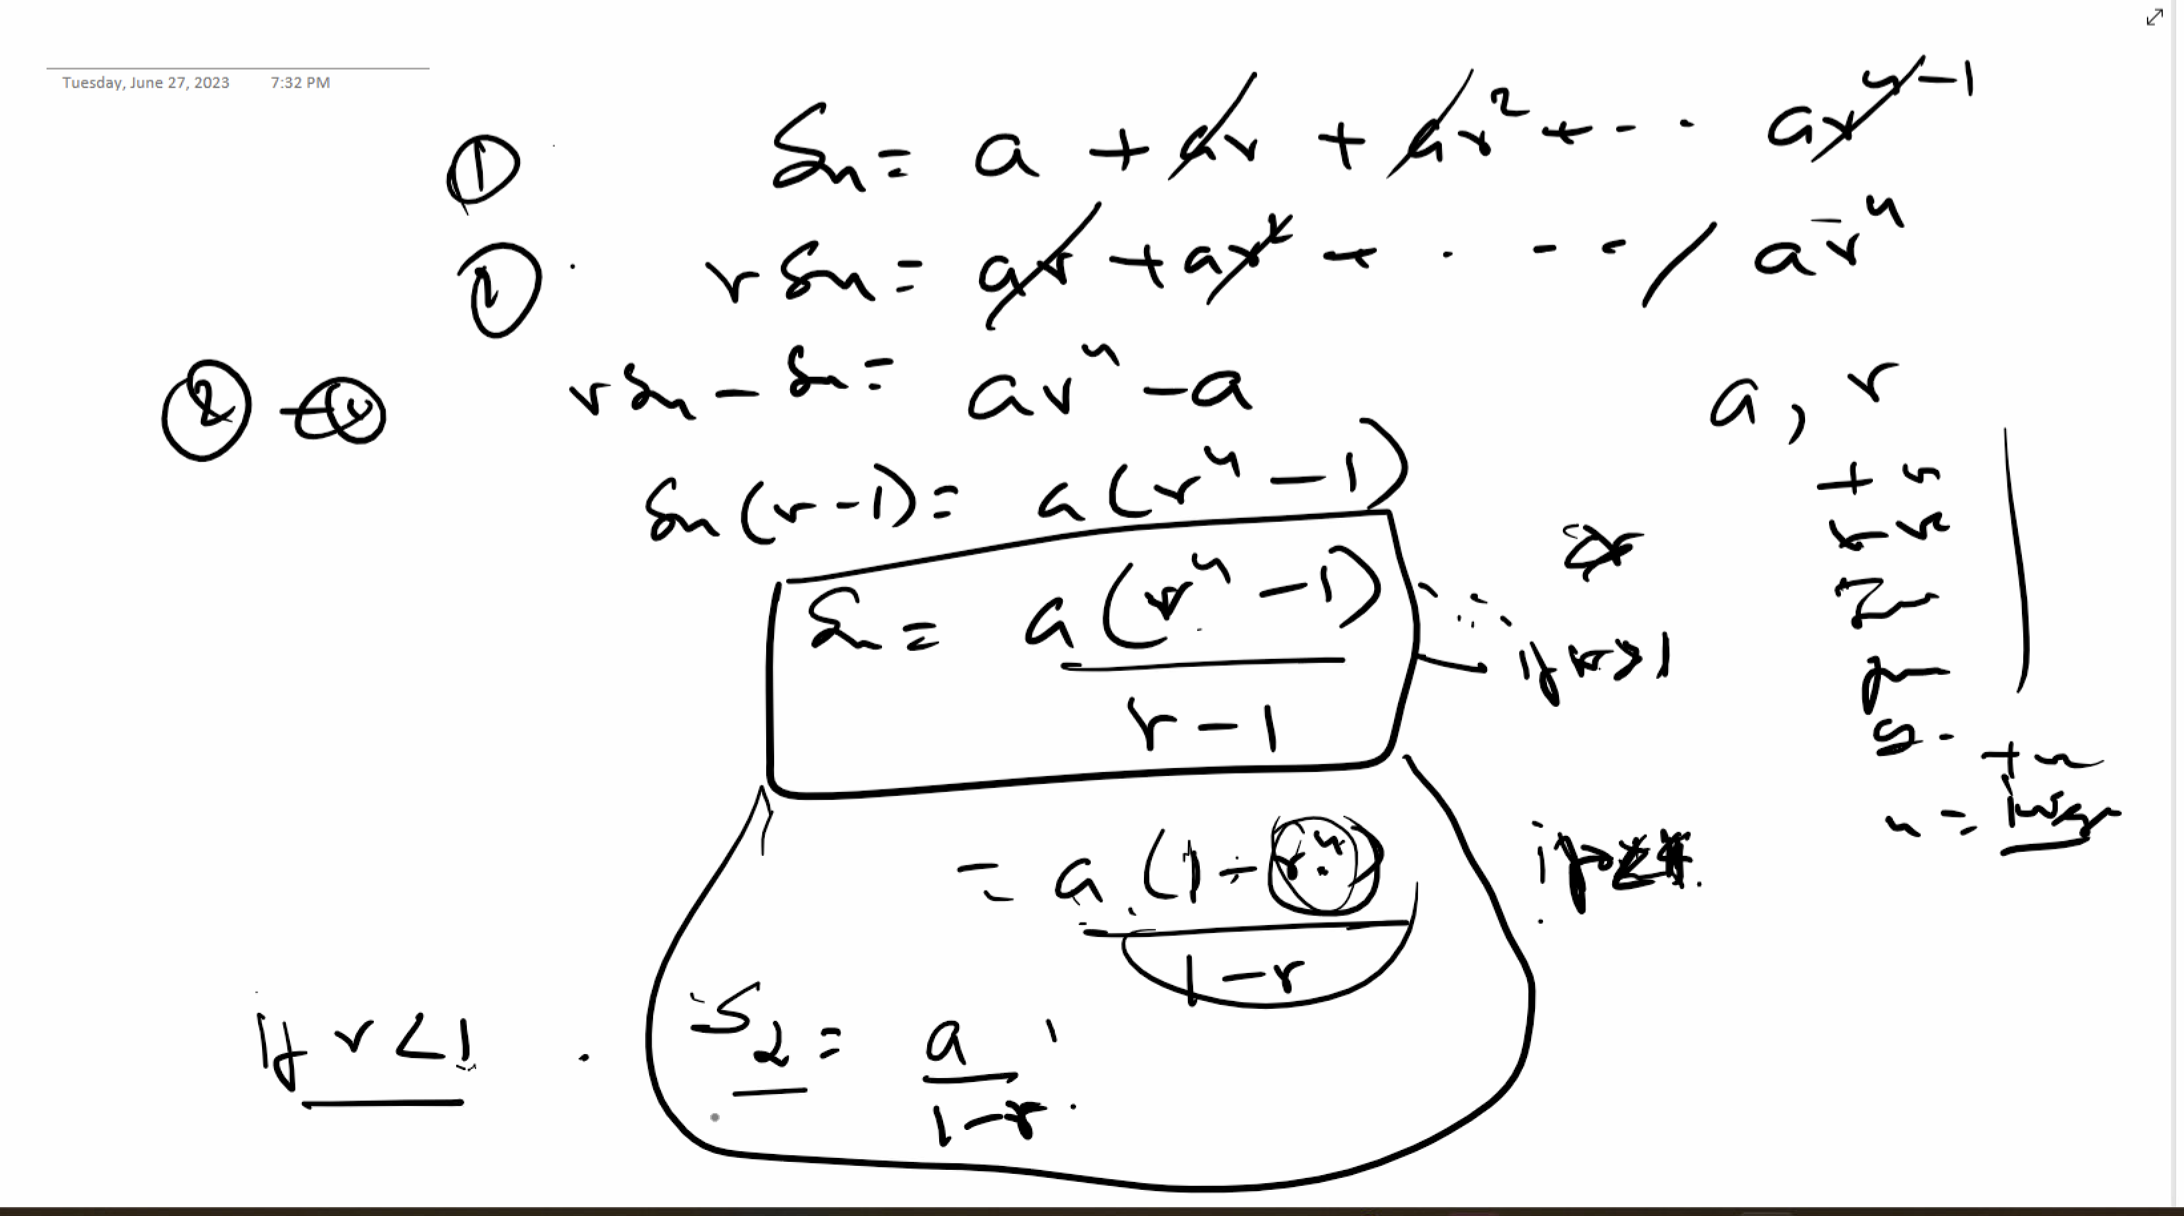 Tuesday, June 27, 2023 7:32 PM
① Sn = a + ar + ar² + - - arⁿ⁻¹
② rSn = ar + ar² + - - - arⁿ
② - ① rSn - Sn = arⁿ - a
a, r
Sn (r-1) = a (rⁿ - 1)
Sn = a (rⁿ - 1) / r - 1
if r > 1
= a (1 - rⁿ) / 1 - r
n =
if r < 1 . S = a / 1 - r